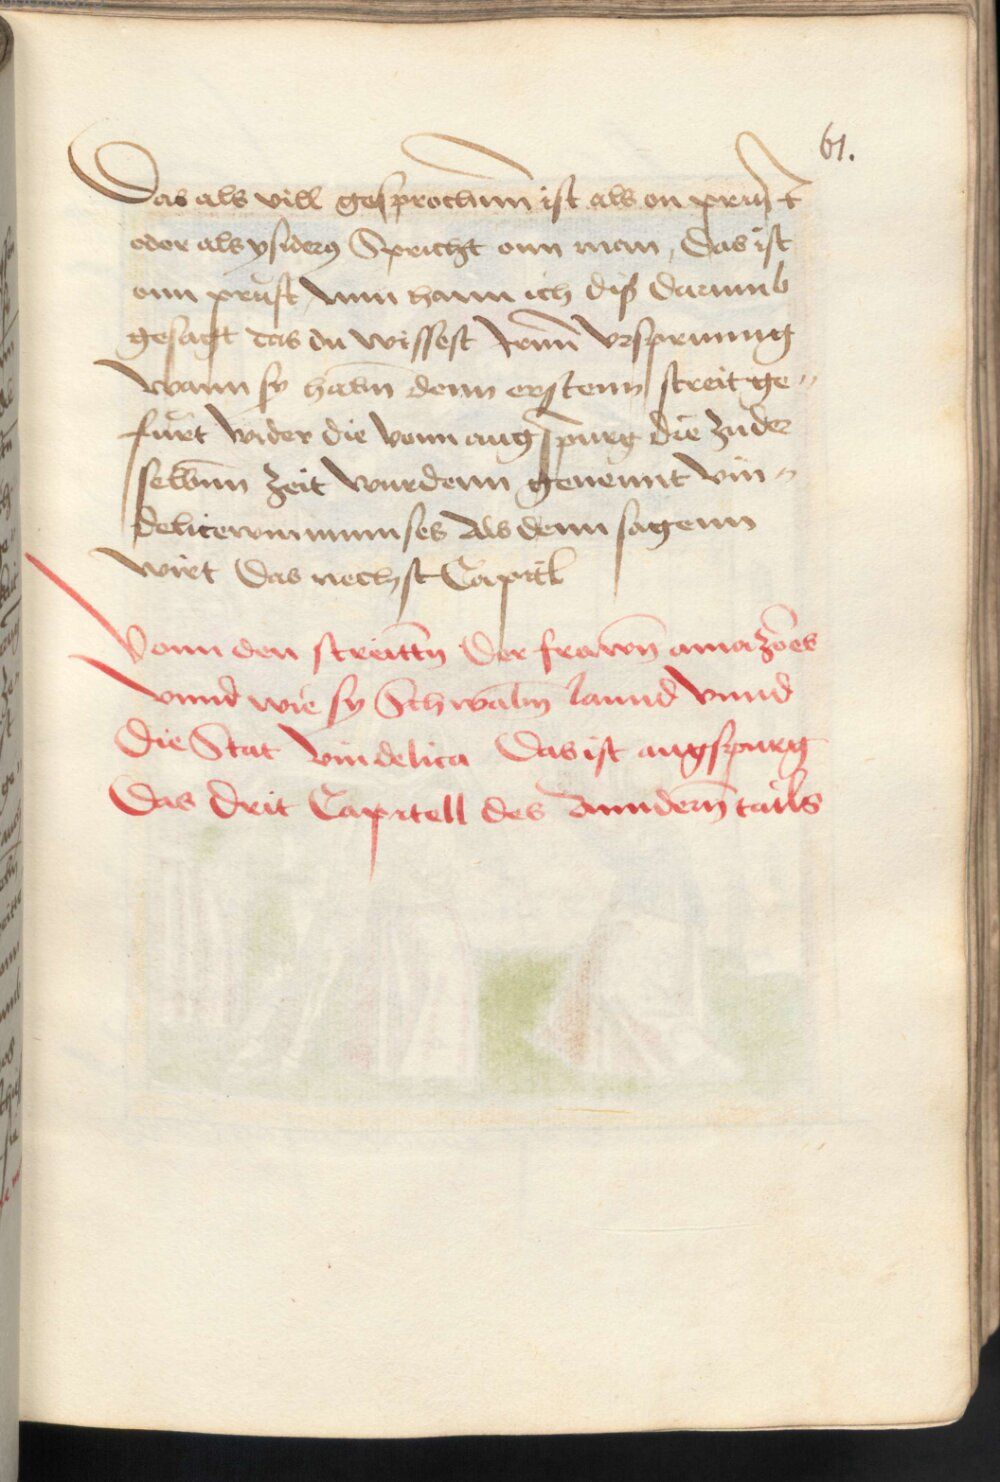 61.
Das als vill gesprochenn ist als on prust
oder als ysiderus Spricht onn man, Das ist
onn prust, Nun hann ich diß Darumb
gesagt das du wissest Irenn Vrsprunng
Wann sy habn denn erstenn streit ge„
furt wider die vonn augspurg die zu der
selbenn zeit wurdenn genennt vin„
delice Als denn sagenn
wirt Das nechst Capitl
Vonn den streittn Der frawn amazones
vnnd wie sy Schwabn lannd vnnd
Die Stat vindelica Das ist augspurg
Das Drit Capitell des Anndern tails